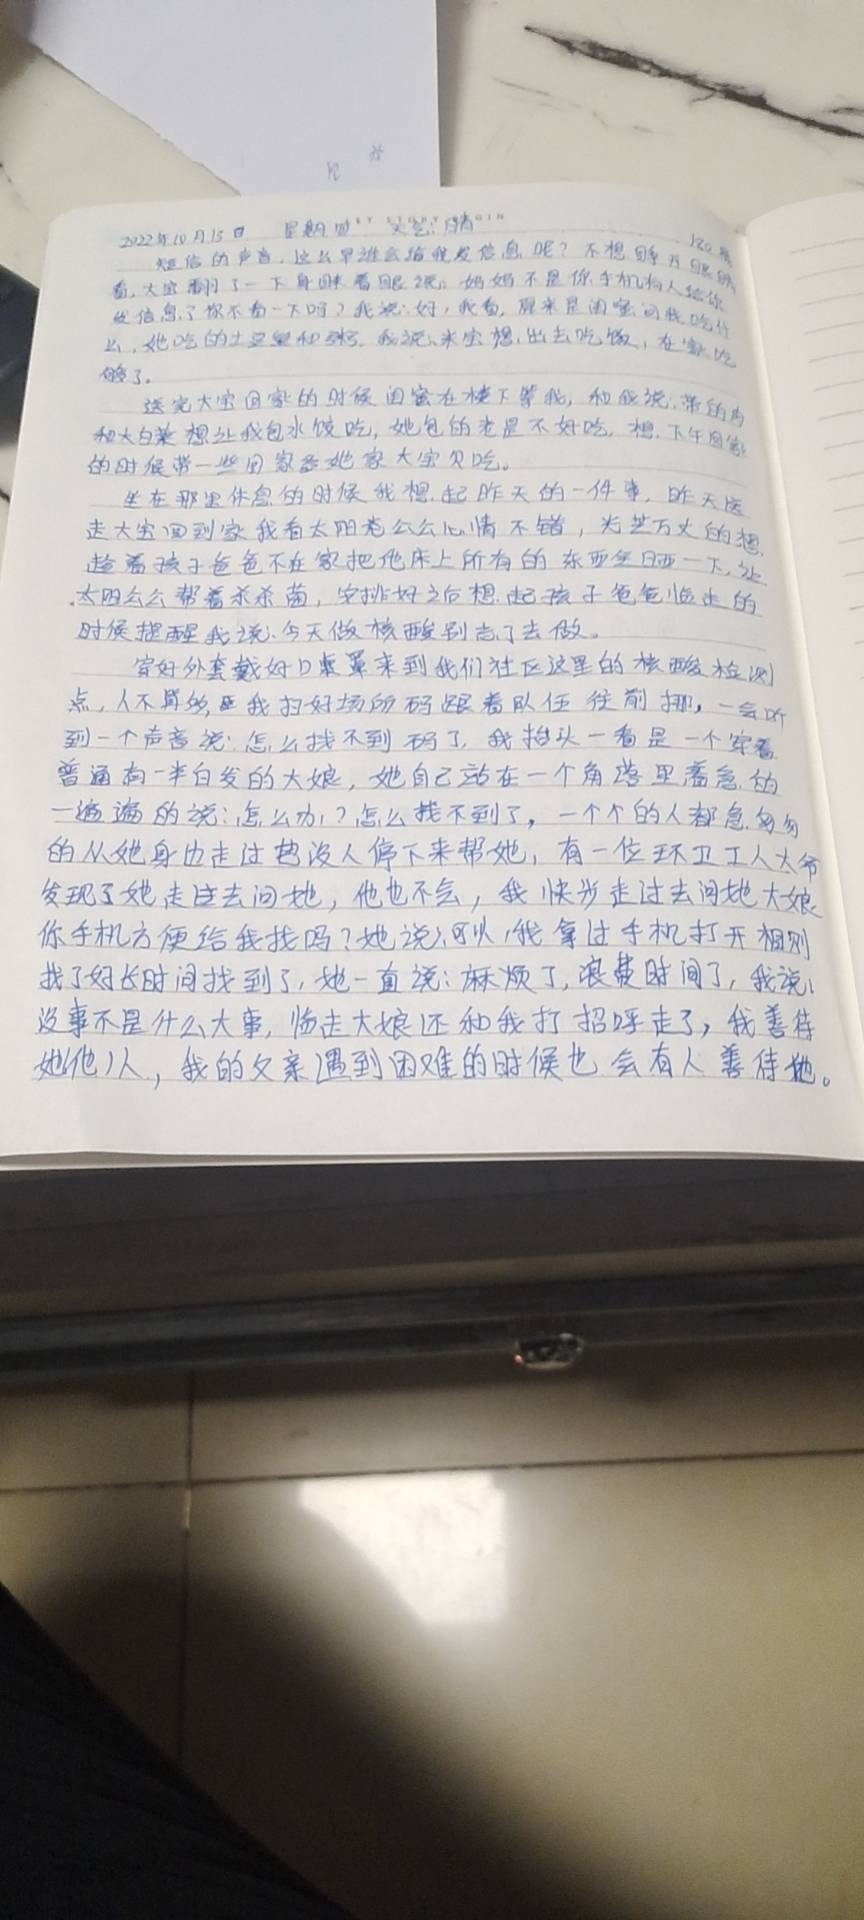 2022年10月13日 星期四 天气:晴
短信的声音,这么早谁会给我发信息呢?不想睁开眼睛
看,大宝翻了一下身眯着眼说:妈妈不是你手机有人给你
发信息了你不看一下吗?我说:好,我看,原来是闺蜜问我吃什
么,她吃的土豆和粥,我说:米宝想出去吃饭,在家吃
够了。
送完大宝回家的时候闺蜜在楼下等我,和我说:带的肉
和大白菜想让我包水饺吃,她包的老是不好吃,想下午回家
的时候带一些回家给她家大宝贝吃。
坐在那里休息的时候我想起昨天的一件事,昨天送
走大宝回到家我看太阳老公公心情不错,光芒万丈的想
趁着孩子爸爸不在家把他床上所有的东西全晒一下,让
太阳公公帮着杀杀菌,安排好之后想起孩子爸爸临走的
时候提醒我说:今天做核酸别忘了去做。
穿好外套戴好口罩来到我们社区这里的核酸检测
点,人不算多,我扫好场所码跟着队伍往前挪,一会听
到一个声音说:怎么找不到码了,我抬头一看是一个穿着
普通有一半白发的大娘,她自己站在一个角落里着急的
一遍遍的说:怎么办?怎么找不到了,一个个的人都急匆匆
的从她身边走过也没人停下来帮她,有一位环卫工人大爷
发现了她走过去问她,他也不会,我快步走过去问她大娘
你手机方便给我找吗?她说:可以,我拿过手机打开相册
找了好长时间找到了,她一直说:麻烦了,浪费时间了,我说:
没事不是什么大事,临走大娘还和我打招呼走了,我善待
她(他)人,我的父亲遇到困难的时候也会有人善待他。